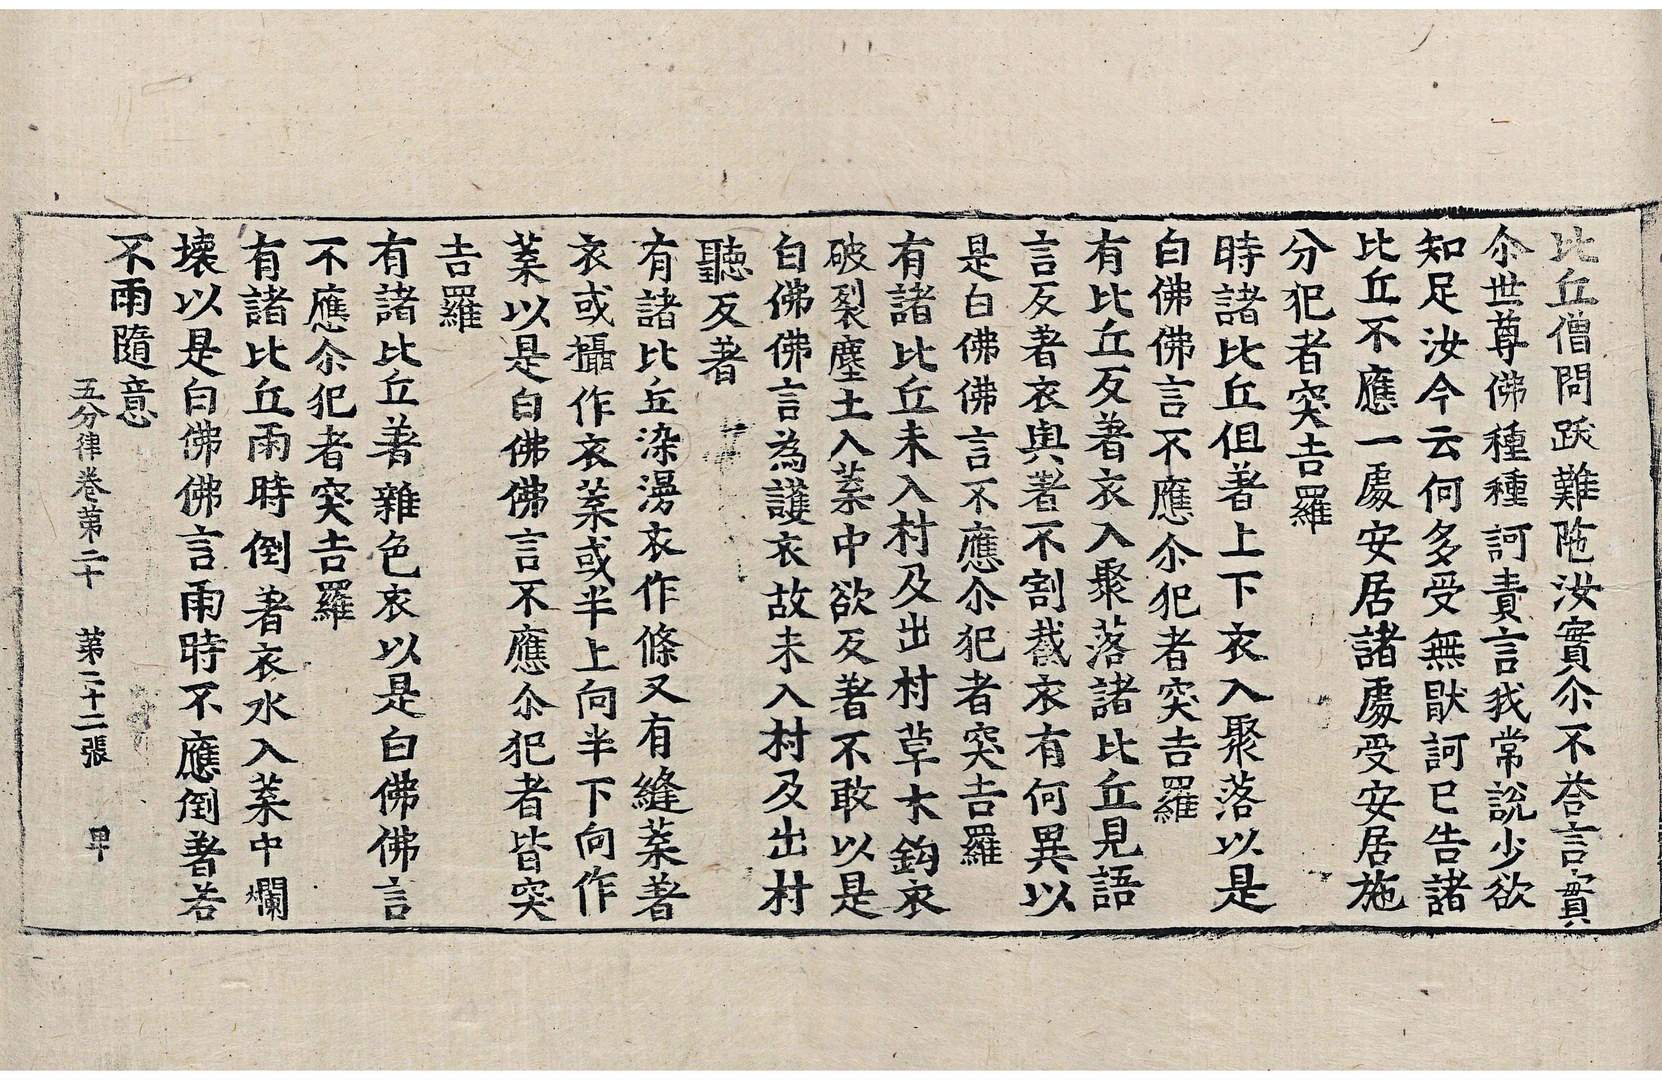 比丘僧問䟦難陁汝實尒不荅言實
尒世尊佛種種訶責言我常說少欲
知足汝今云何多受無猒訶已告諸
比丘不應一處安居諸處受安居施
分犯者突吉羅
時諸比丘但著上下衣入聚落以是
白佛佛言不應尒犯者突吉羅
有比丘反著衣入聚落諸比丘見語
言反著衣與著不割截衣有何異以
是白佛佛言不應尒犯者突吉羅
有諸比丘未入村及出村草木鈎衣
破裂塵土入葉中欲反著不敢以是
白佛佛言為護衣故未入村及出村
聽反著
有諸比丘染漫衣作條又有縫葉著
衣或攝作衣葉或半上向半下向作
葉以是白佛佛言不應尒犯者皆突
吉羅
有諸比丘著雜色衣以是白佛佛言
不應尒犯者突吉羅
有諸比丘雨時倒著衣水入葉中爛
壞以是白佛佛言雨時不應倒著若
不雨隨意
五分律卷第二十 第二十二張